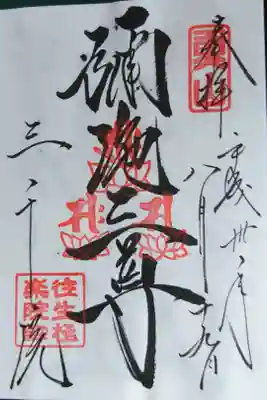 奉拝
平成卅年
八月十九日
彌陀三尊
三千院
往生極
楽院印